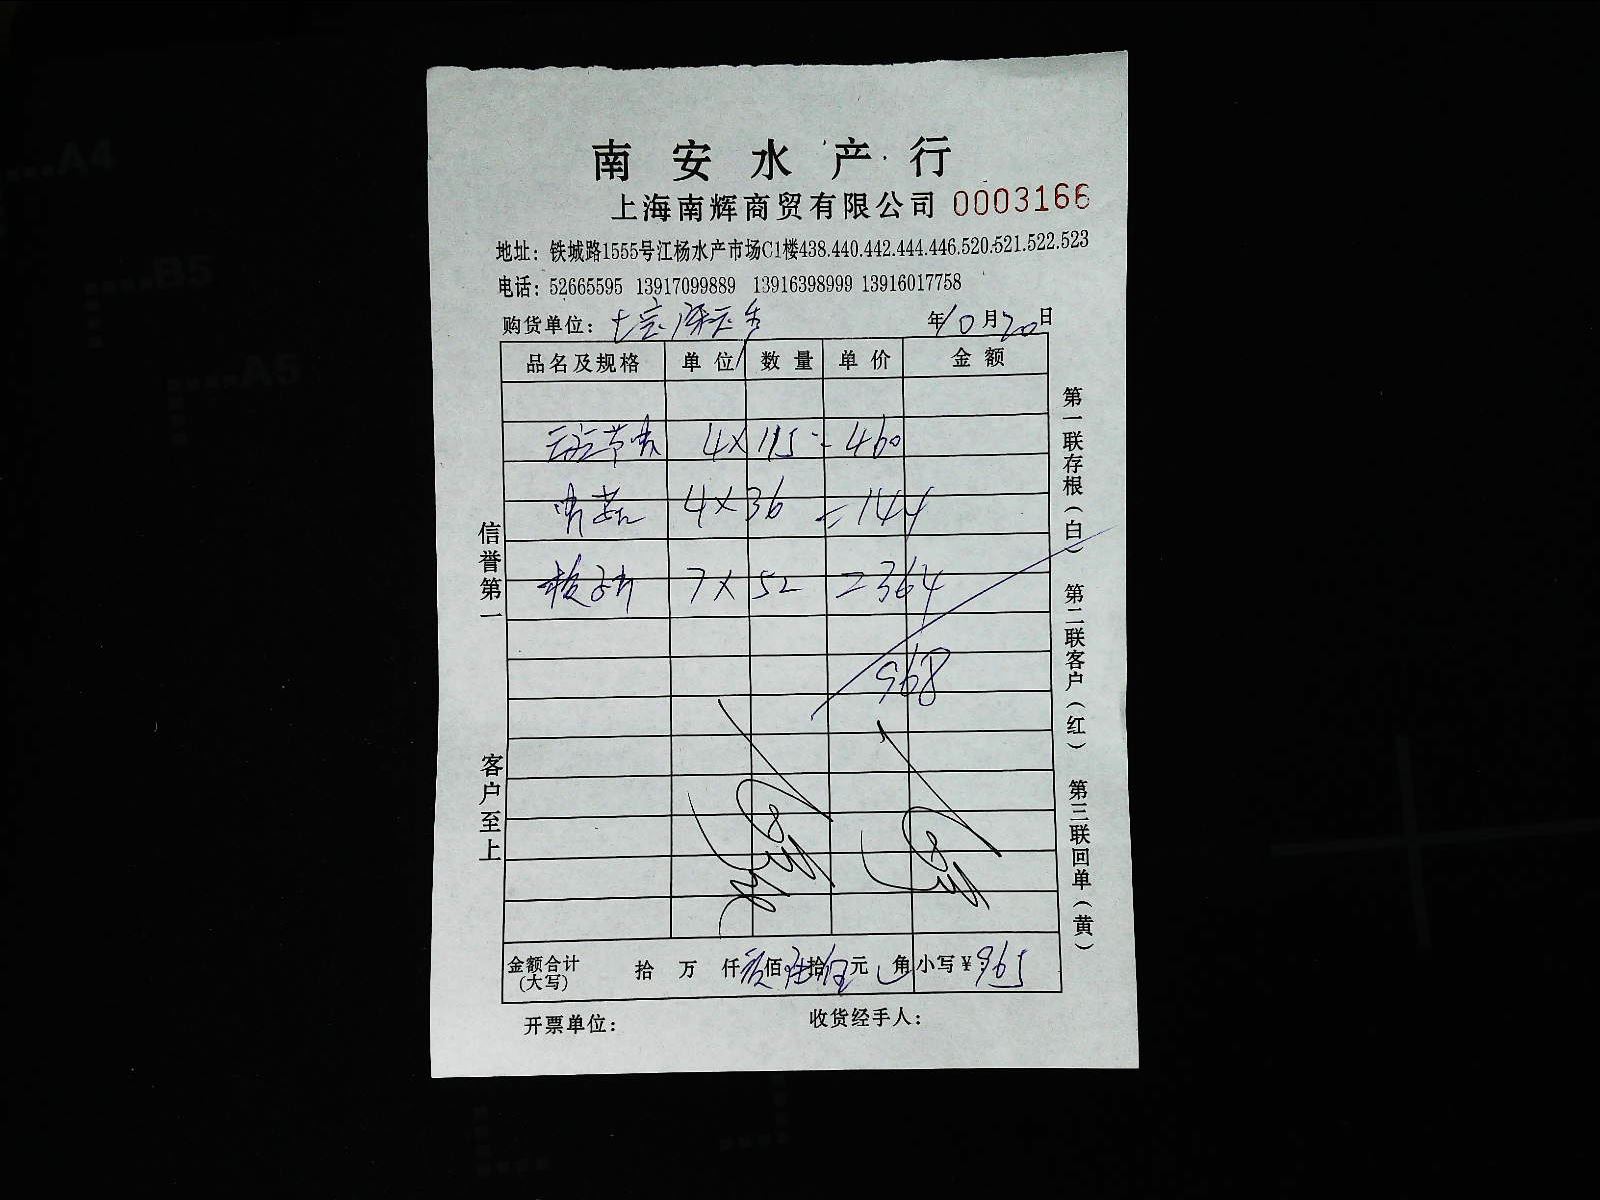 南安水产行
上海南辉商贸有限公司 0003166
地址：铁城路1555号江杨水产市场C1楼438.440.442.444.446.520.521.522.523
电话：52665595 13917099889 13916398999 13916017758
购货单位： 年10月20日
品名及规格 单位 数量 单价 金额
4×115=460
4×36=144
7×52=364
968
金额合计(大写) 拾 万 仟 玖佰陆拾伍元 角 小写￥：965
开票单位： 收货经手人：
信誉第一 客户至上
第一联存根（白） 第二联客户（红） 第三联回单（黄）
A4
B5
A5